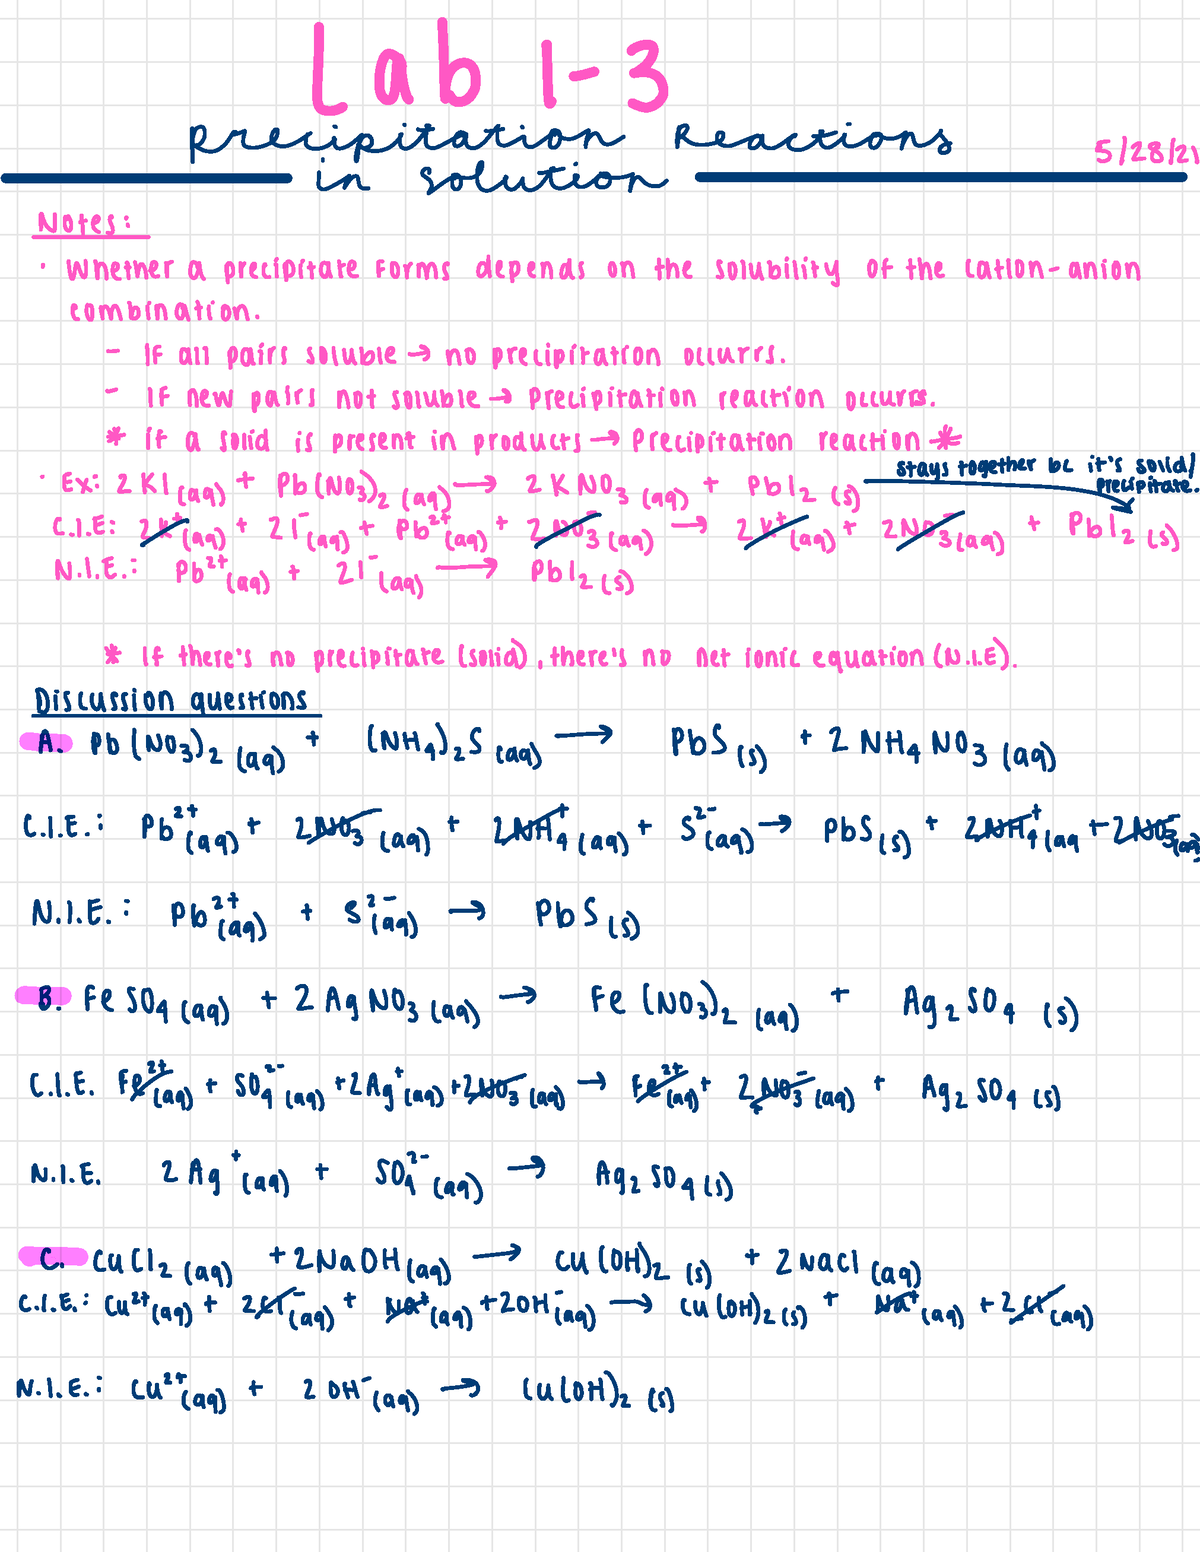 Lab 1-3
Precipitation Reactions
in solution
5/28/21
Notes:
· Whether a precipitate forms depends on the solubility of the cation-anion
combination.
- If all pairs soluble → no precipitation occurrs.
- If new pairs not soluble → Precipitation reaction occurrs.
* if a solid is present in products → Precipitation reaction *
stays together bc it's solid/
precipitate.
· Ex: 2 KI (aq) + Pb(NO₃)₂ (aq) → 2 KNO₃ (aq) + PbI₂ (s)
C.I.E: 2K⁺(aq) + 2I⁻(aq) + Pb²⁺(aq) + 2NO₃⁻(aq) → 2K⁺(aq) + 2NO₃⁻(aq) + PbI₂ (s)
N.I.E.: Pb²⁺(aq) + 2I⁻(aq) → PbI₂ (s)
* If there's no precipitate (solid), there's no net ionic equation (N.I.E).
Discussion questions
A. Pb(NO₃)₂ (aq) + (NH₄)₂S (aq) → PbS (s) + 2 NH₄NO₃ (aq)
C.I.E.: Pb²⁺(aq) + 2NO₃⁻(aq) + 2NH₄⁺(aq) + S²⁻(aq) → PbS (s) + 2NH₄⁺(aq + 2NO₃⁻(aq)
N.I.E.: Pb²⁺(aq) + S²⁻(aq) → PbS (s)
B. FeSO₄ (aq) + 2 AgNO₃ (aq) → Fe(NO₃)₂ (aq) + Ag₂SO₄ (s)
C.I.E. Fe²⁺(aq) + SO₄²⁻(aq) + 2Ag⁺(aq) + 2NO₃⁻(aq) → Fe²⁺(aq) + 2NO₃⁻(aq) + Ag₂SO₄ (s)
N.I.E. 2Ag⁺(aq) + SO₄²⁻(aq) → Ag₂SO₄(s)
C. CuCl₂ (aq) + 2NaOH(aq) → Cu(OH)₂ (s) + 2NaCl (aq)
C.I.E.: Cu²⁺(aq) + 2Cl⁻(aq) + Na⁺(aq) + 2OH⁻(aq) → Cu(OH)₂(s) + Na⁺(aq) + 2Cl⁻(aq)
N.I.E.: Cu²⁺(aq) + 2OH⁻(aq) → Cu(OH)₂ (s)